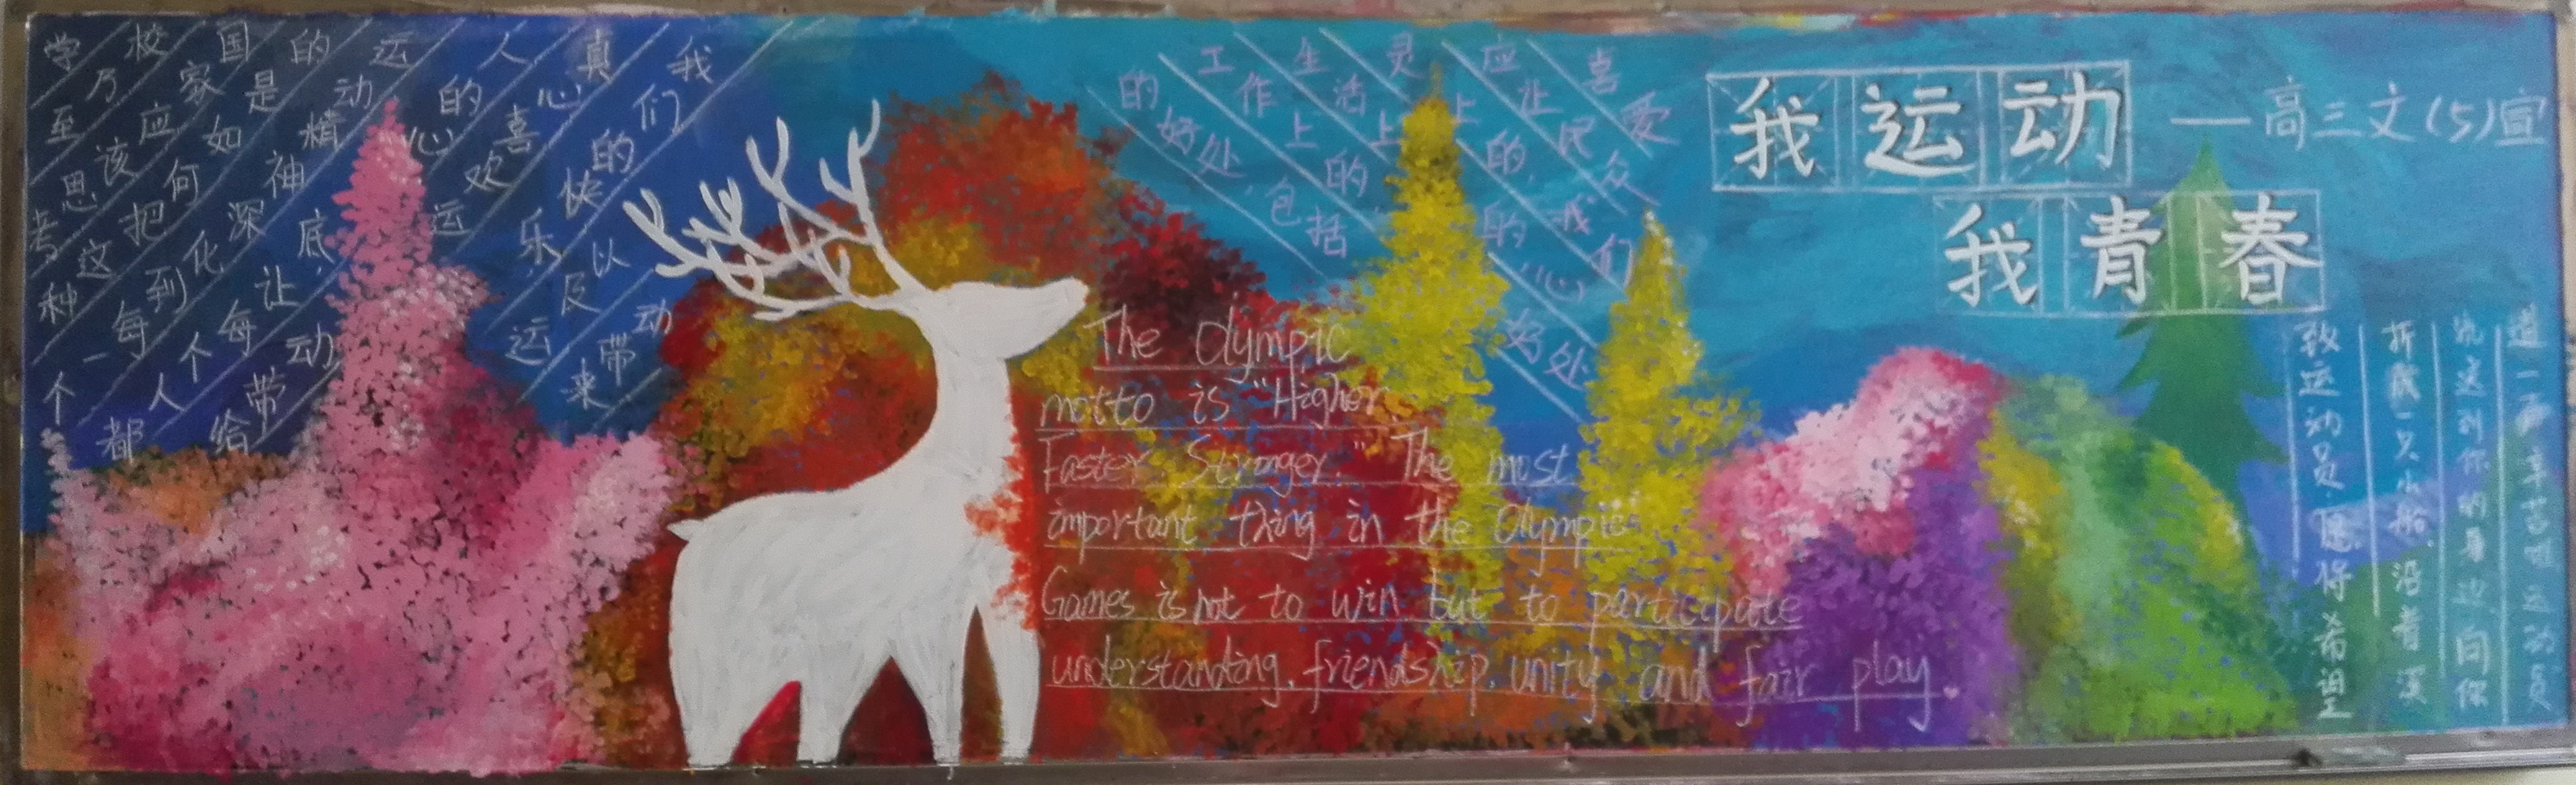 我运动
我青春
——高三文(5)宣
学
校乃至
国家应该思考
的是如何把这种
运动精神深化到每一个
人的心底,让每个人都
真心喜欢运动带给
我们的快乐,
以及运
动带来
的好处,包括
工作上的,
生活上的
应让民众
喜爱
The Olympic
motto is "Higher
Faster Stronger." The most
important thing in the Olympic
Games is not to win but to participate
understanding, friendship, unity and fair play.
致运动员 愿将希望
折成一只小船,沿着溪
流这到你的身边,向你
道一声:辛苦啦运动员